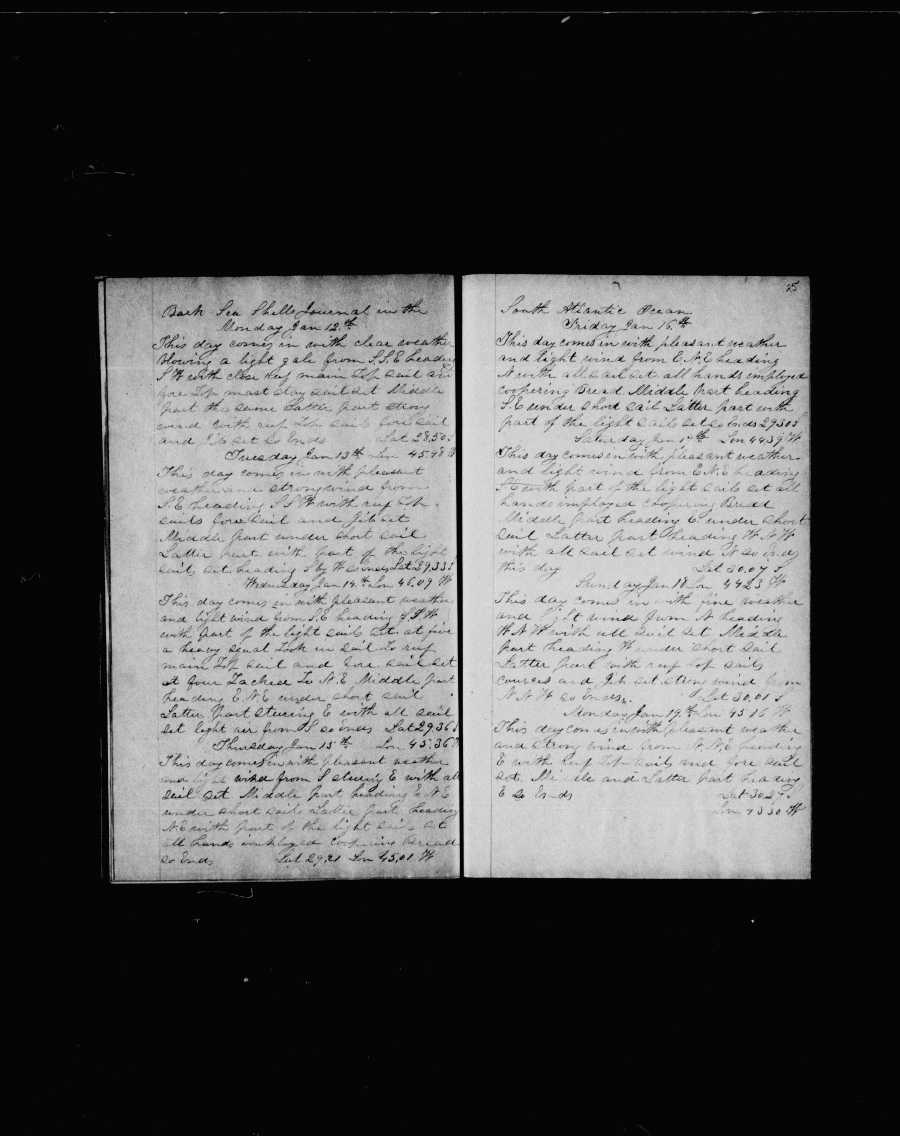 Bark Sea Shells Journal in the
Monday Jan 12th
This day comes in with clear weather
blowing a light gale from S.S.E heading
S W with close reef main Top sail and
fore Top mast stay sail set Middle
part the same Latter part strong
wind with reef Top sails fore sail
and Jib set so Ends Lat 28.50 S
Tuesday Jan 13th Lon 45.48 W
This day comes in with pleasant
weather and strong wind from
S.E heading S S W with reef Top
sails fore sail and Jib set
Middle part under short sail
Latter part with part of the light
sails set heading S by W so ends Lat 29.33 S
Wednesday Jan 14th Lon 46.09 W
This day comes in with pleasant weather
and light wind from S.E heading S.S W
with part of the light sails set at five
a heavy squal Took in sail To reef
main Top sail and fore sail set
at four Tacked To N.E Middle part
heading E N.E under short sail
Latter part steering E with all sail
set light air from S so ends Lat 29.36 S
Thursday Jan 15th Lon 45.36 W
This day comes in with pleasant weather
and light wind from S steering E with all
sail set Middle part heading E N.E
under short sail Latter part heading
N.E with part of the light sails set
all hands imployed Coopering Bread
so Ends Lat 29.21 Lon 45.01 W
25
South Atlantic Ocean
Friday Jan 16th
This day comes in with pleasant weather
and light wind from E.N.E heading
N with all sail set all hands imployed
coopering Bread Middle Part heading
S.E under short sail Latter part with
part of the light sails set so Ends 29.30 S
Saturday Jan 17th Lon 44.39 W
This day comes in with pleasant weather
and light wind from E N.E heading
S.E with part of the light sails set all
hands imployed coopering Bread
Middle part heading E under short
sail Latter part heading W N W
with all sail set wind N so ends
this day Lat 30.07 S
Sunday Jan 18 Lon 44.23 W
This day comes in with fine weather
and light wind from N heading
W N W with all sail set Middle
part heading W under short sail
Latter part with reef Top sails
courses and Jib set strong wind from
N N W so Ends Lat 30.01 S
Monday Jan 19th Lon 45 16 W
This day comes in with pleasant weather
and strong wind from N.N.E heading
E with reef Top sails and fore sail
set Middle and Latter part heading
E so Ends Lat 30.27 S
Lon 43 30 W